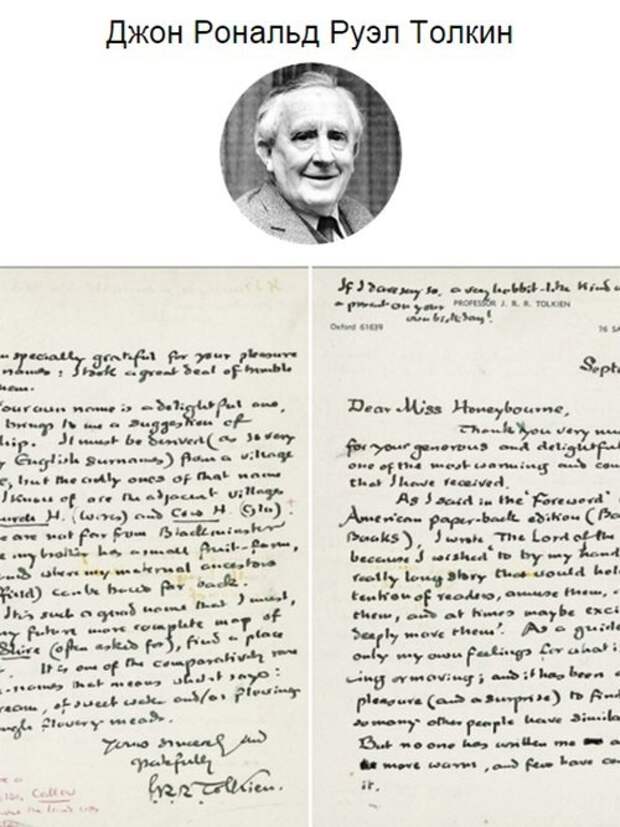 Джон Рональд Руэл Толкин
specially grateful for your pleasure
names: I took a great deal of trouble
them.
Your own name is a delightful one,
brings to me a suggestion of
ship. It must be derived (as so very
English surnames) from a village
but the only ones of that name
I know of are the adjacent villages
Church H. (Worcs) and Cow H. (Glo):
are not far from Blackminster
my brother has a small fruit-farm,
and where my maternal ancestors
field) can be traced far back.
It is such a good name that I must,
my future more complete map of
Shire (often asked for), find a place
it. It is one of the comparatively rare
names that means what it says:
ream, of sweet water and/or flowing
ough flowery meads.
Yours sincerely and
gratefully
J.R.R. Tolkien.
Callow
If I dare say so, a very hobbit-like kind
a present on your
own birthday!
PROFESSOR J. R. R. TOLKIEN
Oxford 61639
76 SA
Septe
Dear Miss Honeybourne,
Thank you very mu
for your generous and delightful
one of the most warming and com
that I have received.
As I said in the "Foreword"
American paper-back edition (Ba
Books), I wrote The Lord of the
because I wished "to try my hand
really long story that would hol
tention of readers, amuse them,
them, and at times maybe exci
deeply move them". As a guide
only my own feelings for what i
ing or moving; and it has been
pleasure (and a surprise) to find
so many other people have simila
But no one has written me a
more warm, and few have com
it.